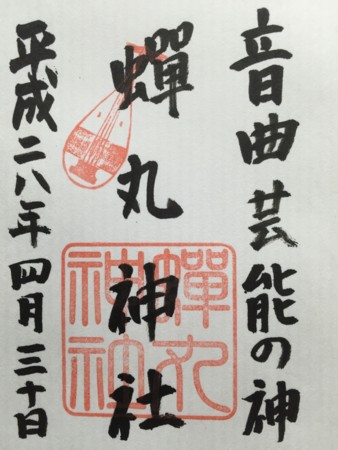 音曲芸能の神
蟬丸神社
平成二八年四月三十日
蟬丸
神社